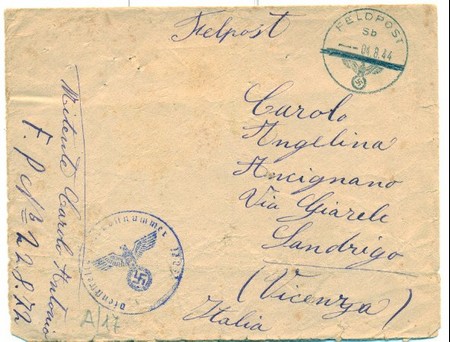 Felpost
FELDPOST
Sb
04.8.44
Carolo
Angelina
Ancignano
Via Giarele
Sandrigo
(Vicenza)
Italia
Mitente Carolo Antonio
F. P. Nº 22812
A/17